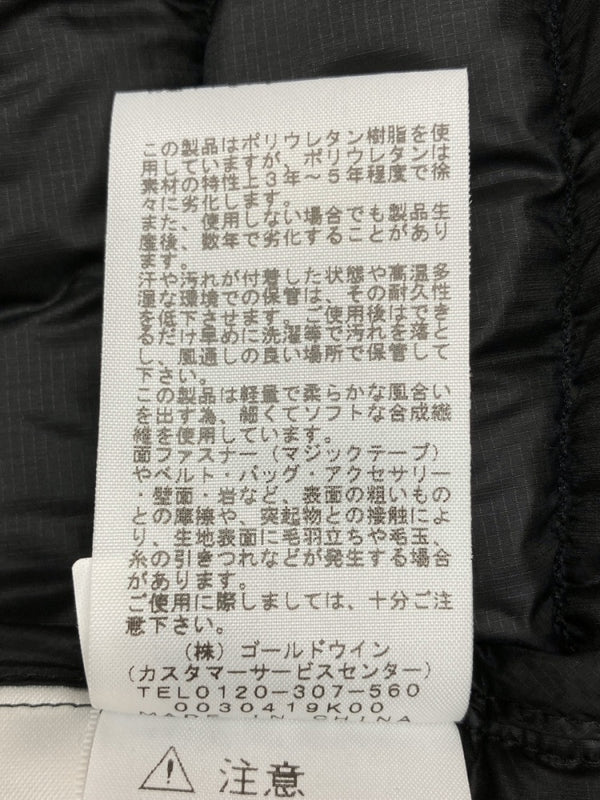 この製品はポリウレタン樹脂を使
用していますが、ポリウレタンは
素材の特性上3年～5年程度で徐
々に劣化します。
また、使用しない場合でも製品生
産後、数年で劣化することがあり
ます。
汗や汚れが付着した状態や高温多
湿な環境での保管は、その耐久性
を低下させます。ご使用後はでき
るだけ早めに洗濯等で汚れを落と
し、風通しの良い場所で保管して
下さい。
この製品は軽量で柔らかな風合い
を出す為、細くてソフトな合成繊
維を使用しています。
面ファスナー（マジックテープ）
やベルト・バッグ・アクセサリー
・壁面・岩など、表面の粗いもの
との摩擦や、突起物との接触によ
り、生地表面に毛羽立ちや毛玉、
糸の引きつれなどが発生する場合
があります。
ご使用に際しましては、十分ご注
意下さい。
（株）ゴールドウイン
（カスタマーサービスセンター）
TEL0120-307-560
0030419K00
MADE IN CHINA
注意